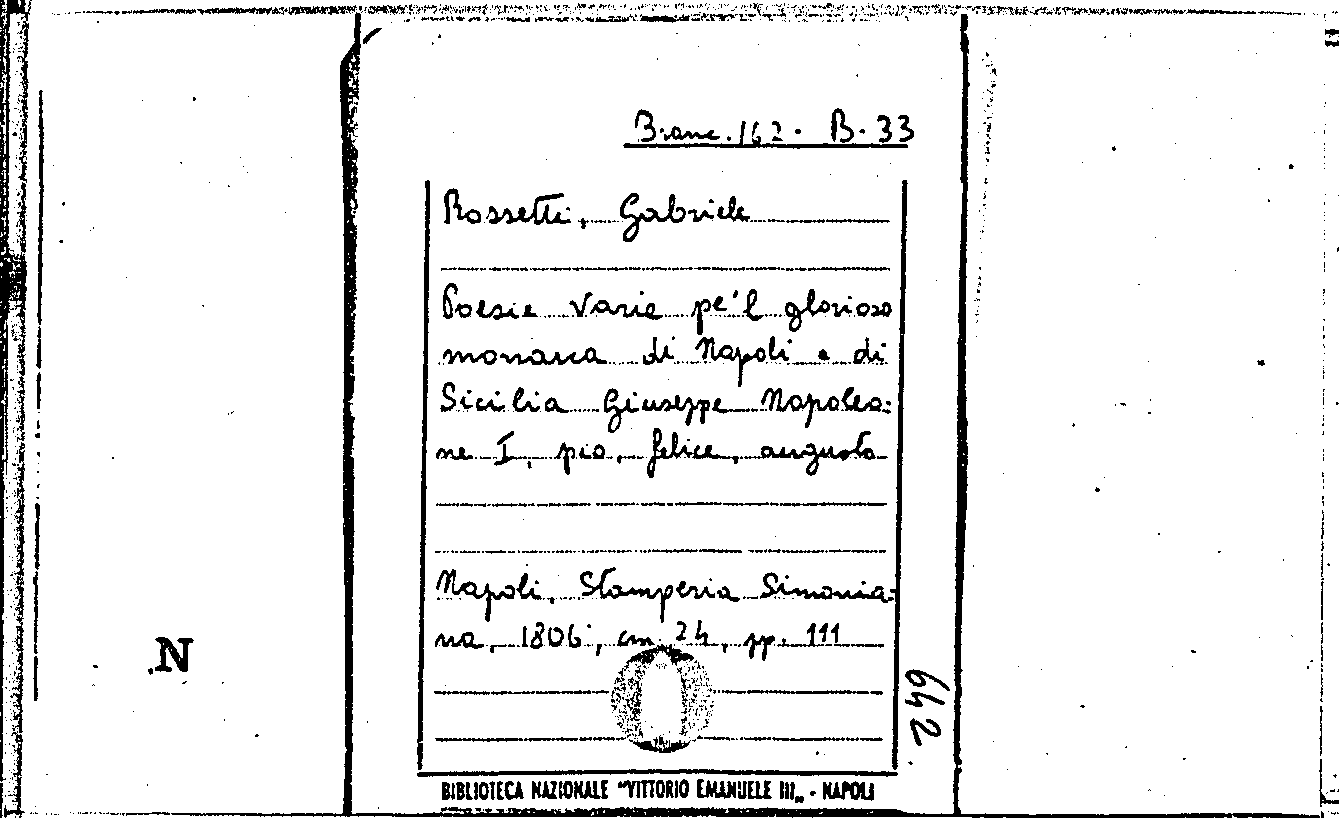 Branc. 162. B. 33
Rossetti, Gabriele
Poesie varie pe'l glorioso
monarca di Napoli e di
Sicilia Giuseppe Napoleo:
ne I, pio, felice, augusto
Napoli, Stamperia Simonia:
na, 1806, cm. 24, pp. 111
642
N
BIBLIOTECA NAZIONALE "VITTORIO EMANUELE III„ - NAPOLI